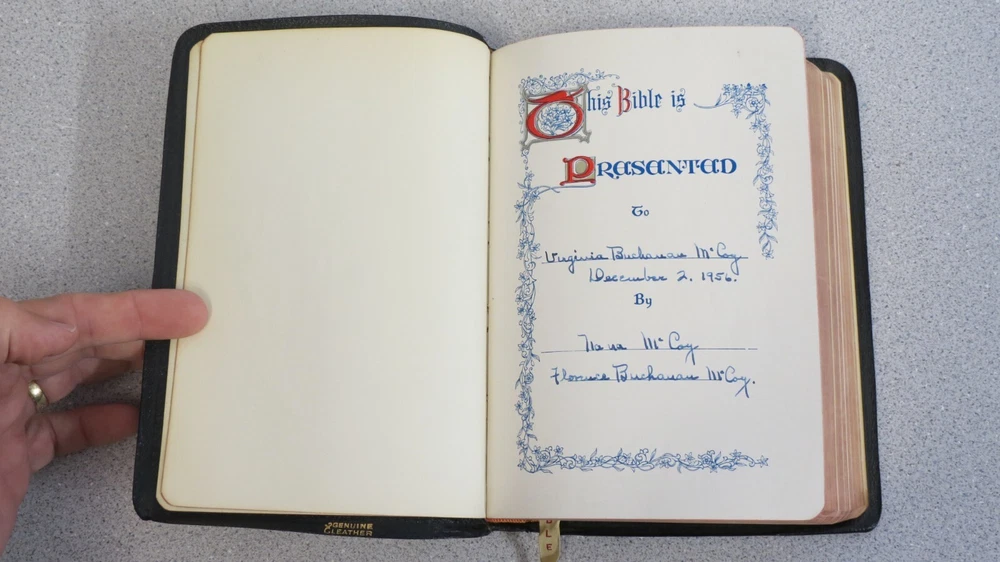 This Bible is
PRESENTED
To
Virginia Buchanan McCoy
December 2, 1956.
By
Nana McCoy
Florence Buchanan McCoy.
GENUINE
LEATHER
L
E